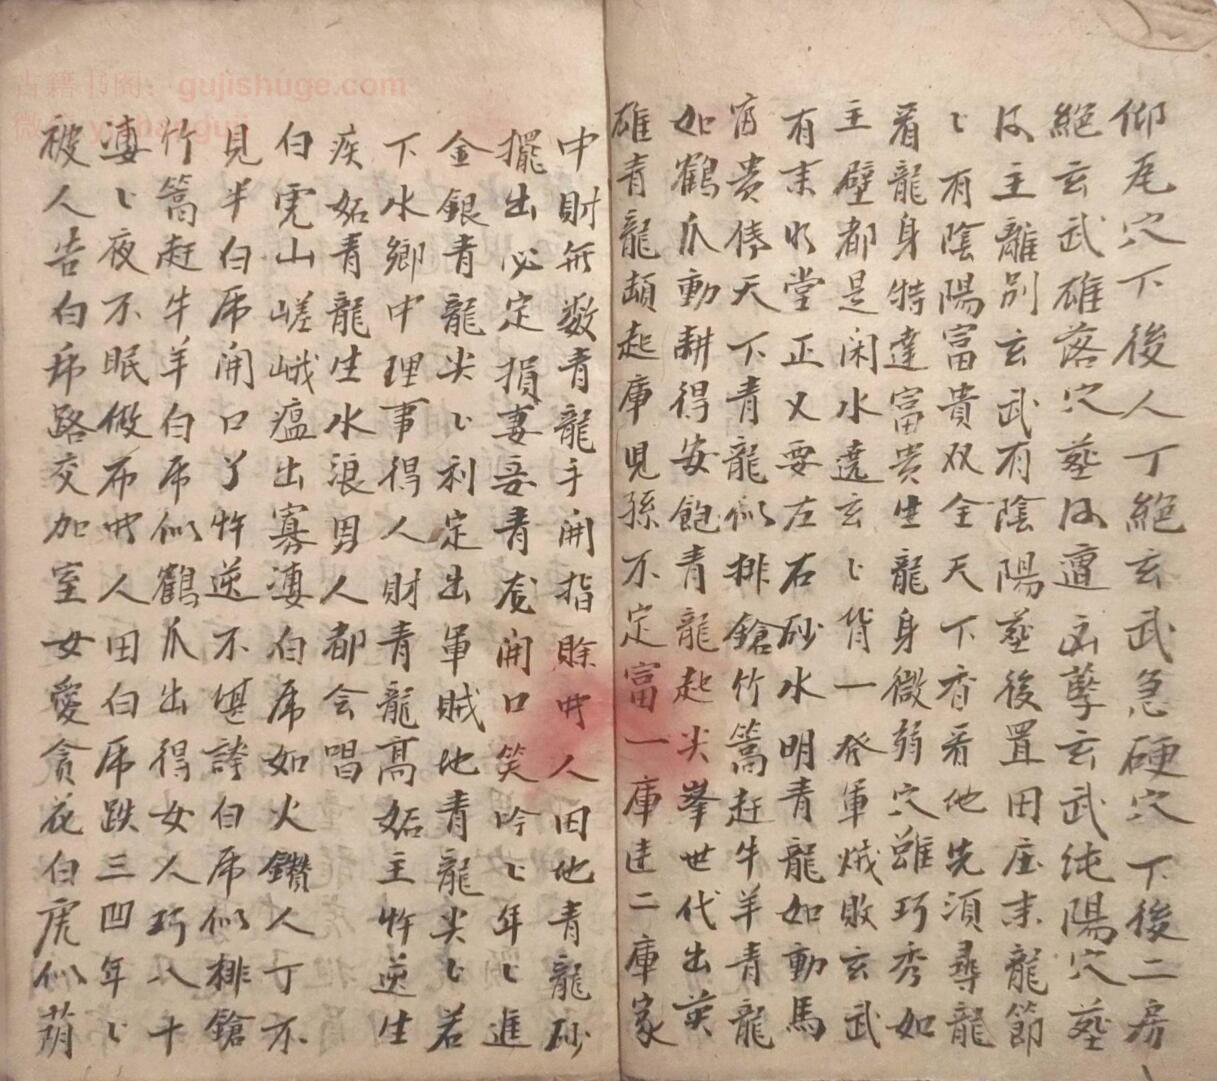 古籍书阁：gujishuge.com
仰瓦穴下後人丁絕玄武急硬穴下後二房
絕玄武雄落穴塟后遭凶孽玄武純陽穴塟
后主離別玄武有陰陽塟後置田庄未龍節
〻有陰陽富貴双全天下奇着他先須尋龍
看龍身特達富貴生龍身微弱穴雖巧秀如
主壁都是闲水遶玄〻背一發軍烖敗玄武
有末明堂正又要左右砂水明青龍如動馬
富貴傳天下青龍似排鎗竹篙赶牛羊青龍
如鶴爪動耕得安飽青龍起尖峯世代出英
雄青龍頭起庫児孫不定富一庫走二庫家
中財無数青龍手開指賖典人田地青龍砂
擺出必定損妻妾青龙開口笑吟〻年〻進
金銀青龍尖〻利定出軍賊地青龍尖〻若
下水鄉中理事得人財青龍高妬主忤逆生
疾妬青龍生水浪男人都会唱
白虎山嵯峨瘟出寡凄白虎如火鑽人丁不
見半白虎開口了忤逆不堪誇白虎似排鎗
竹篙赶牛羊白虎似鶴爪出得女人巧八十
凄〻夜不眠做布典人田白虎跌三四年〻
被人告白虎路交加室女愛貪花白虎似葫